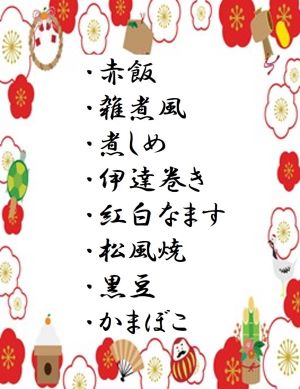 ・赤飯
・雑煮風
・煮しめ
・伊達巻き
・紅白なます
・松風焼
・黒豆
・かまぼこ